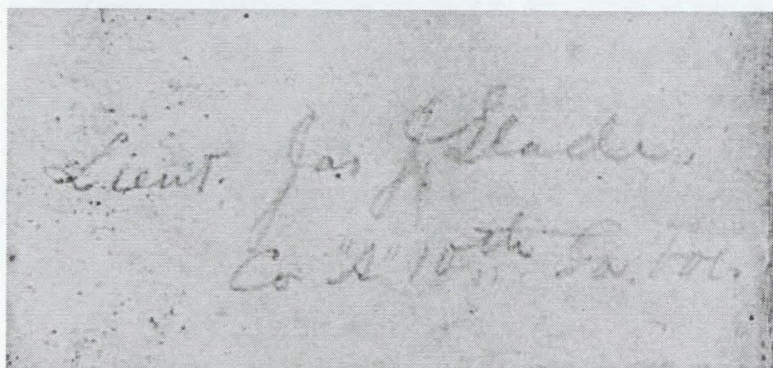 Lieut. Jas J. Slade.
Co "A" 10th Ga. Vol.